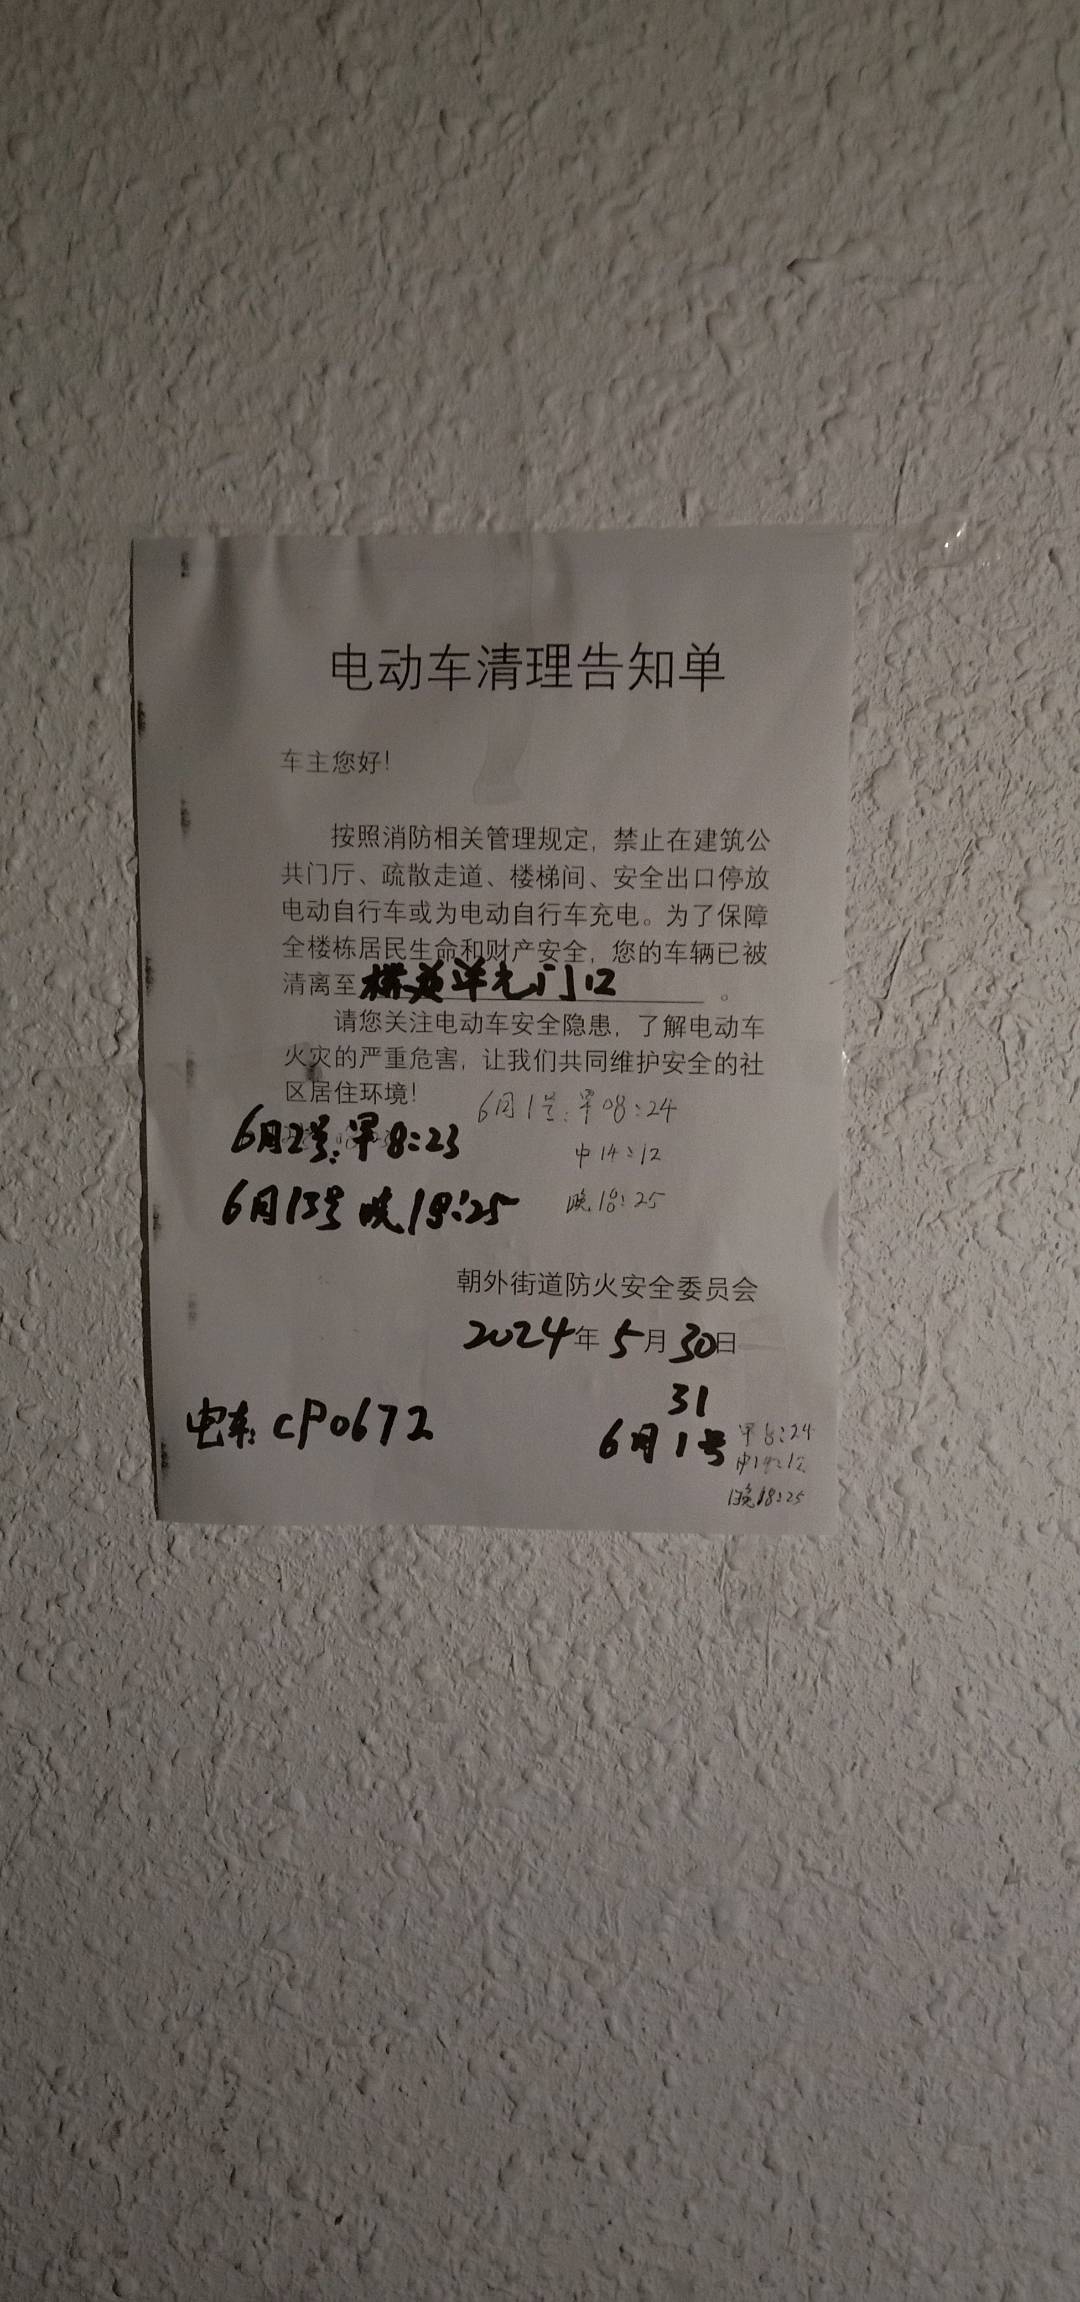 电动车清理告知单
车主您好！
按照消防相关管理规定，禁止在建筑公
共门厅、疏散走道、楼梯间、安全出口停放
电动自行车或为电动自行车充电。为了保障
全楼栋居民生命和财产安全，您的车辆已被
清离至 门口 。
请您关注电动车安全隐患，了解电动车
火灾的严重危害，让我们共同维护安全的社
区居住环境！
6月1号：早08:24
中14:12
晚18:25
6月2号：早8:23
6月13号 晚18:25
朝外街道防火安全委员会
2024年5月30日
31
6月1号 早8:24
中14:12
晚18:25
电车：CP0672